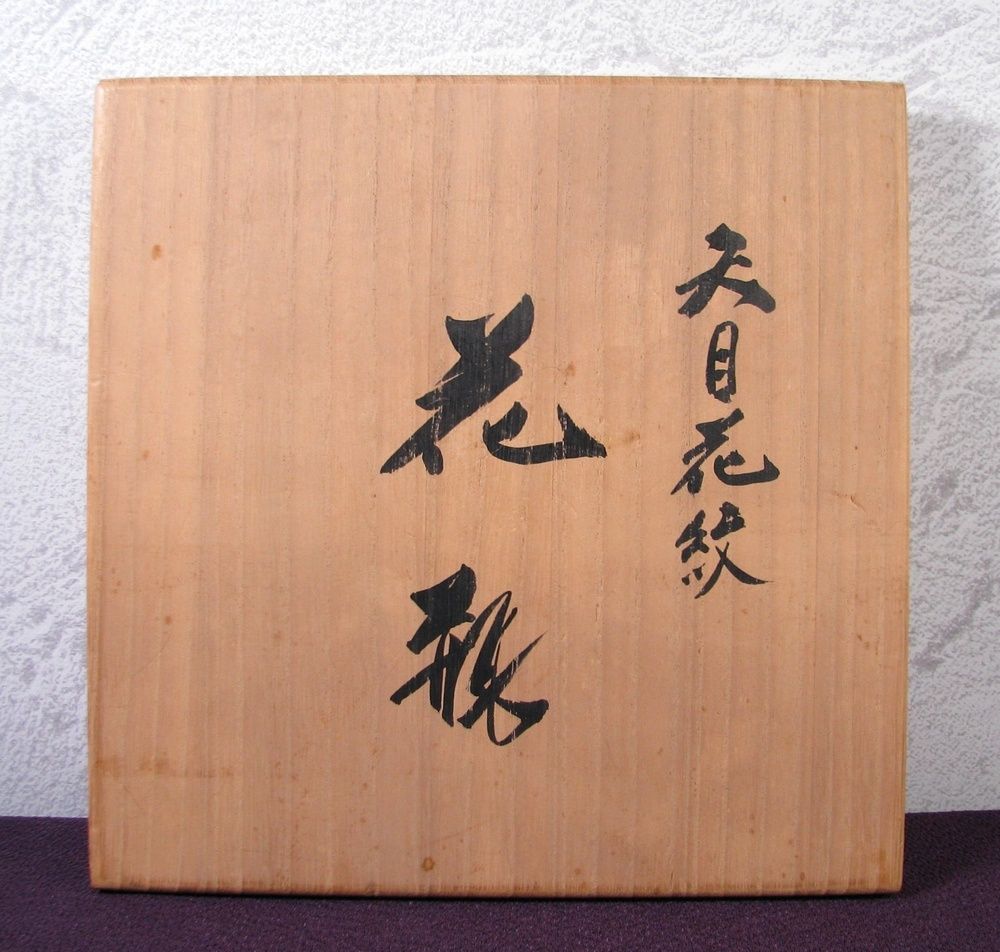 天目花紋
花瓶